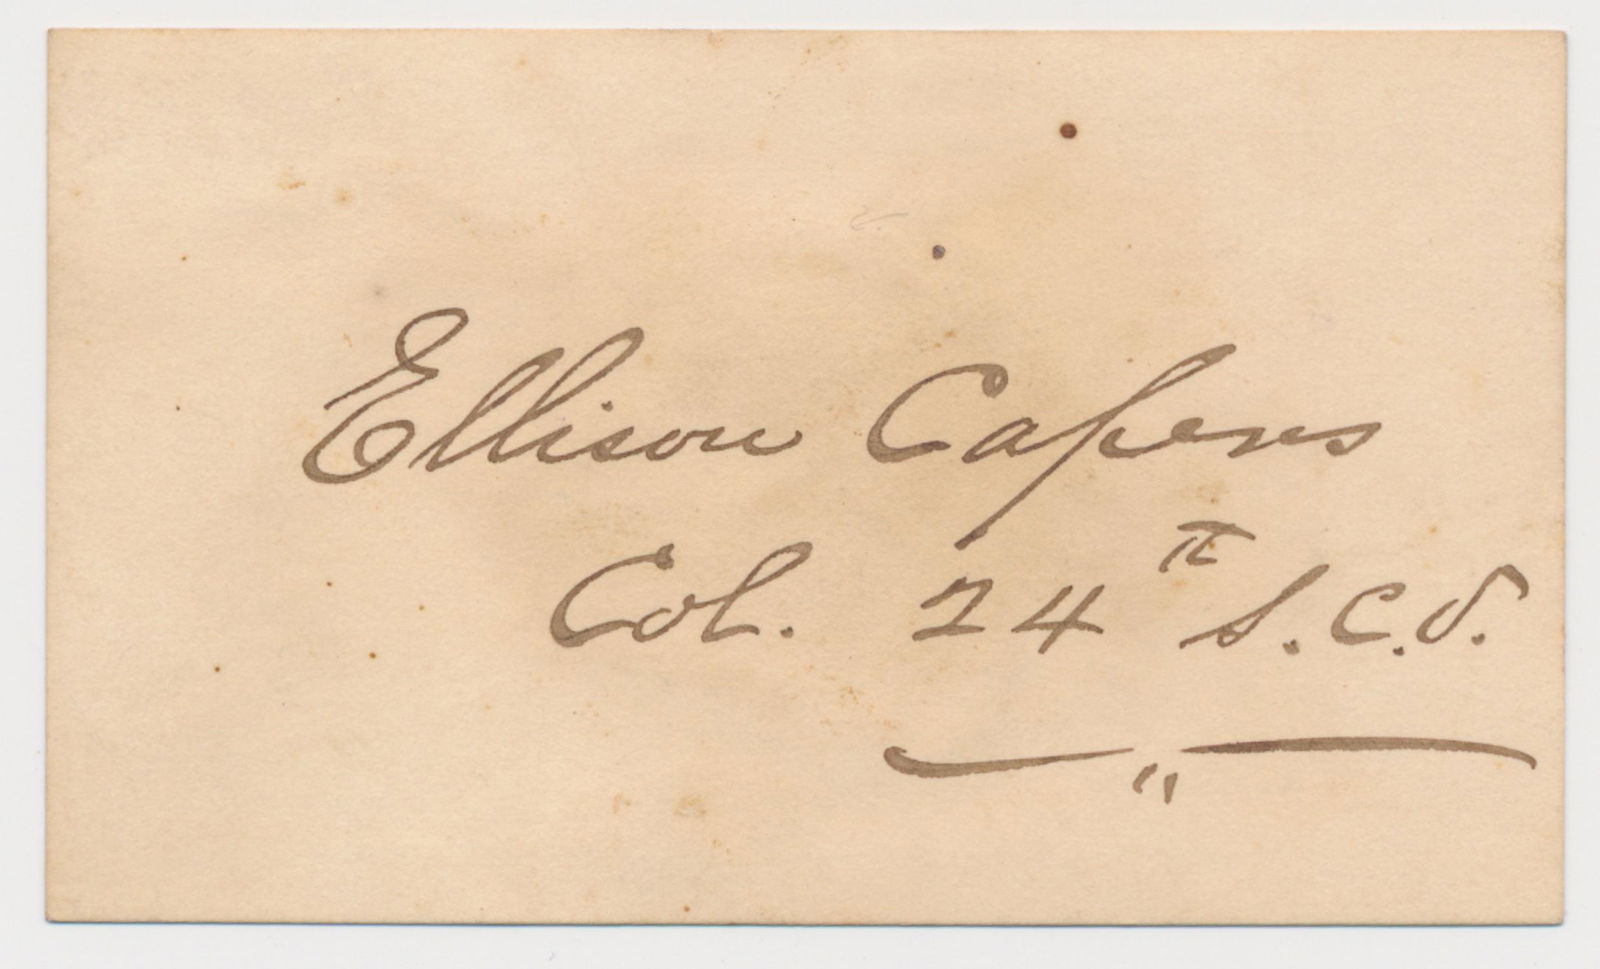 Ellison Capers
Col. 24th S.C.V.